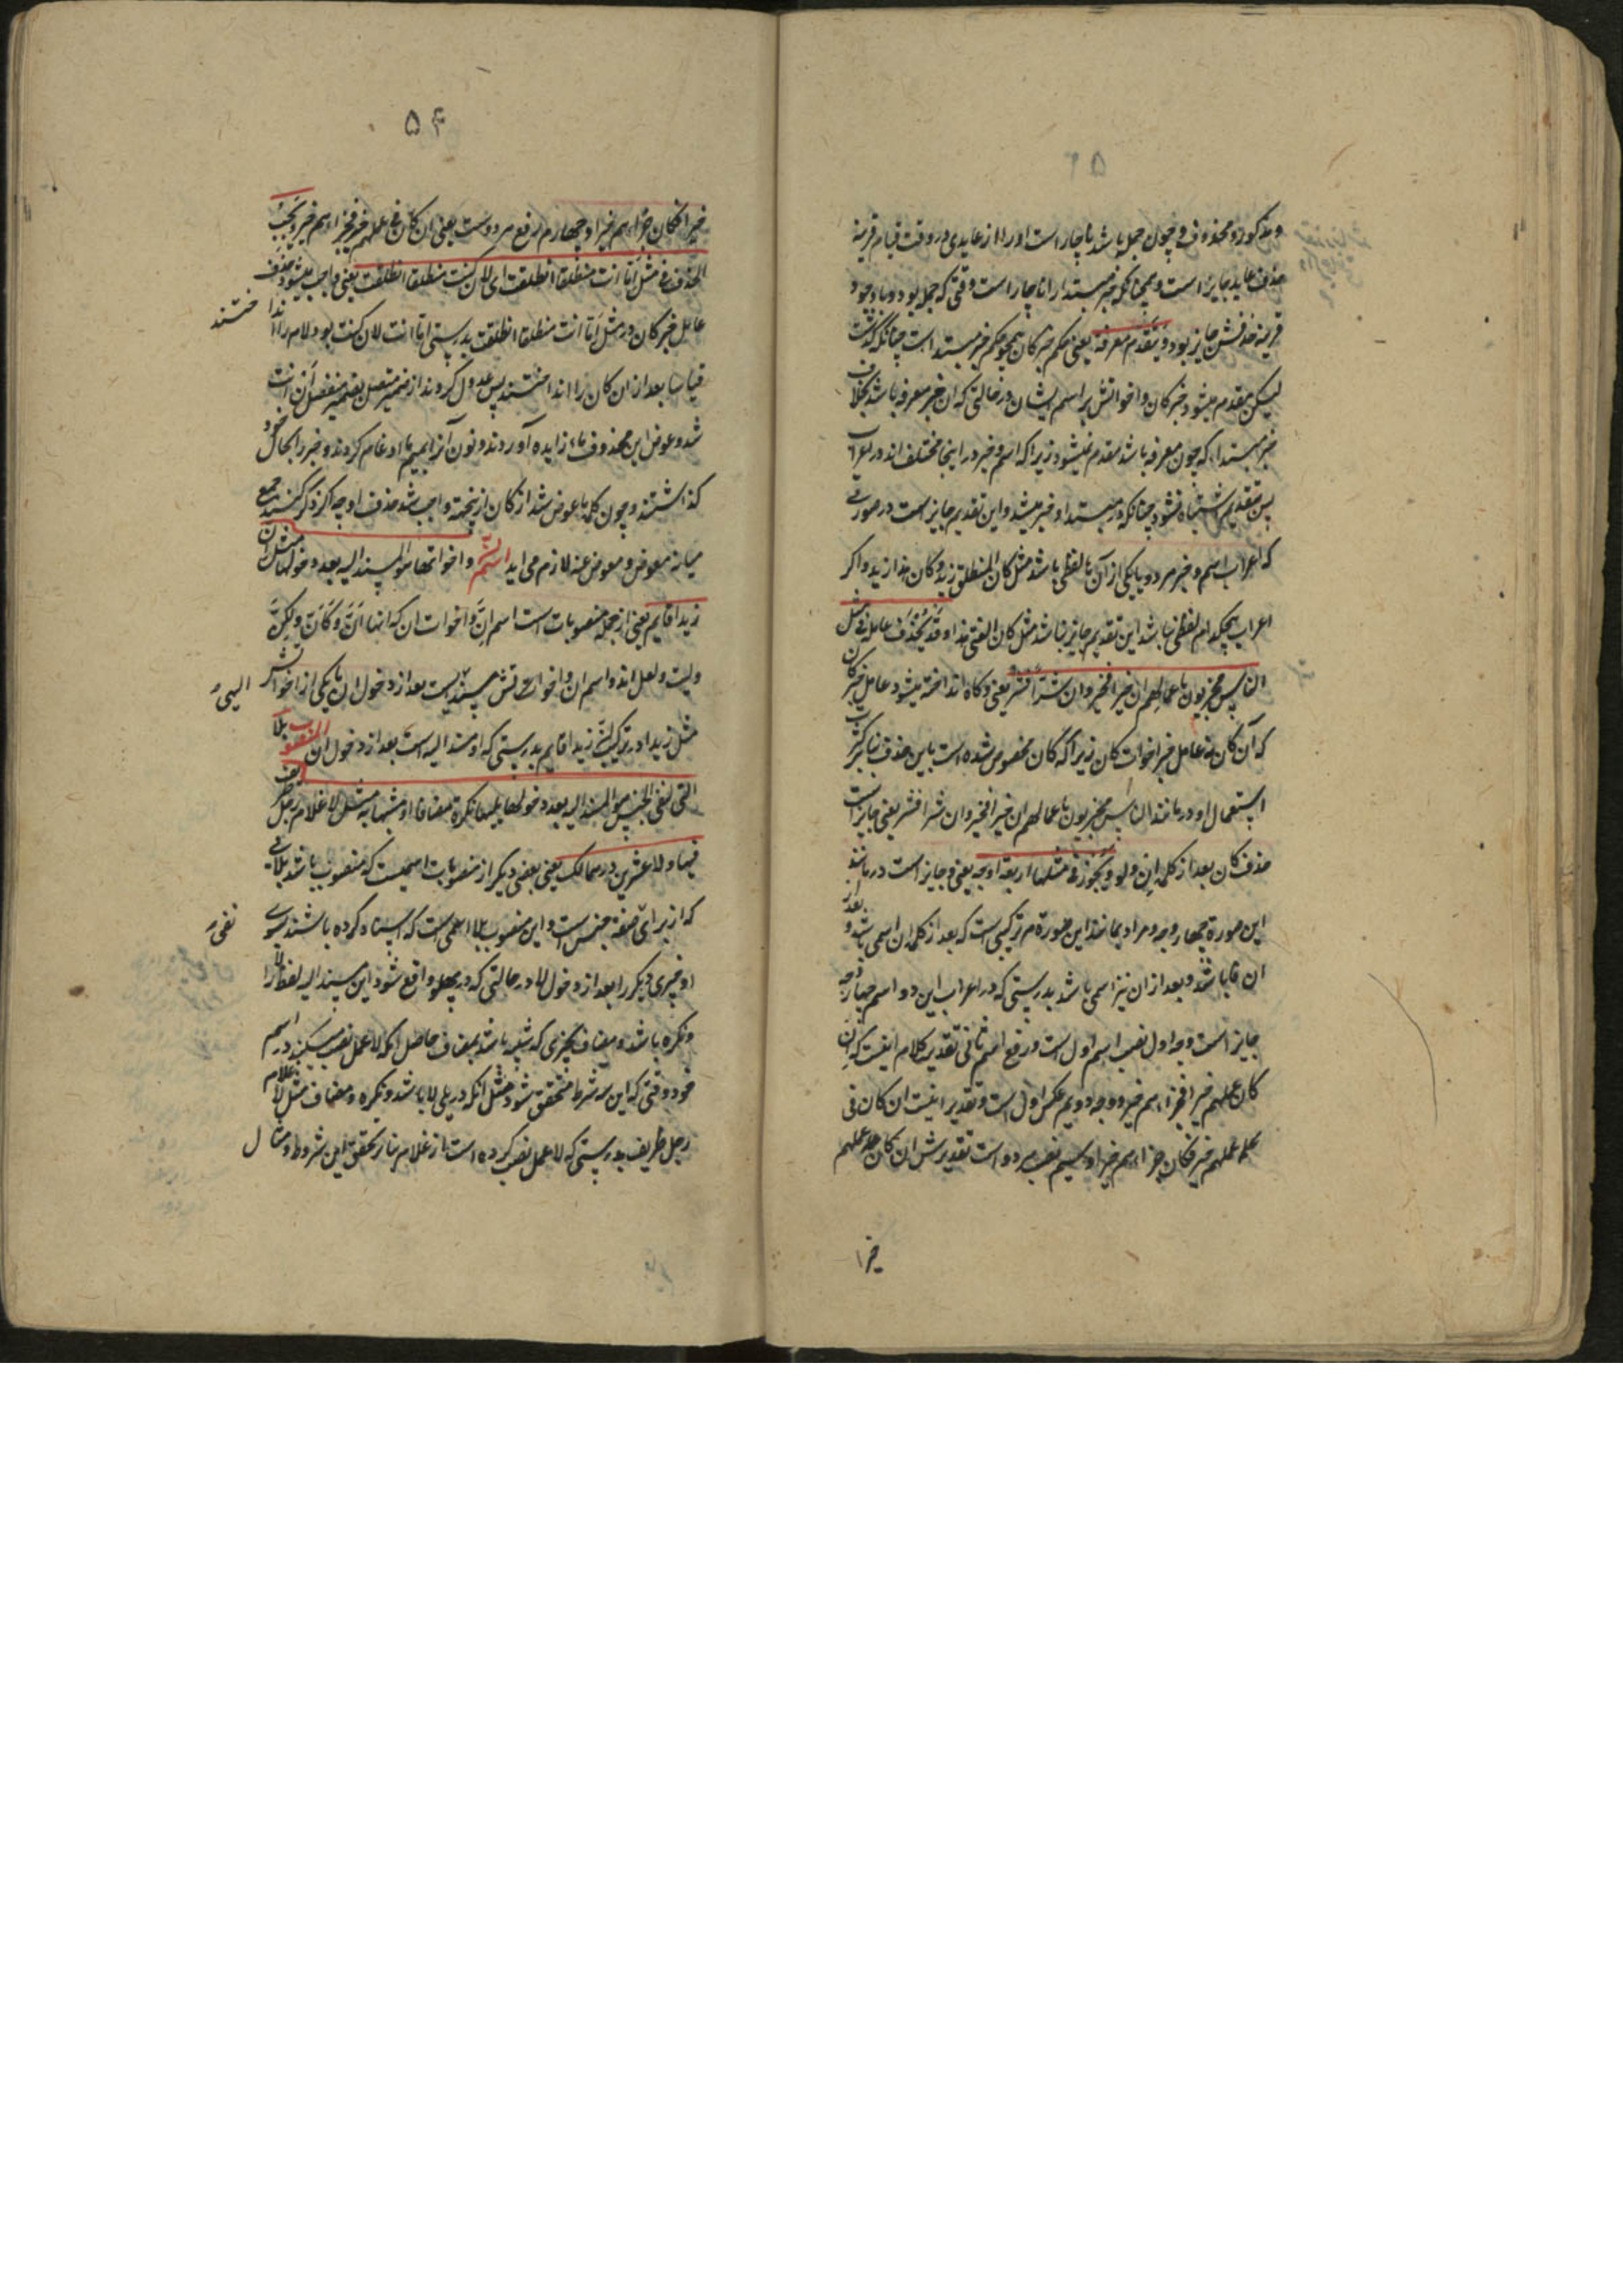 و مذکور و محذوف و چون جمله باشد ناچار است او را از عایدی و در وقت قیام قرینه
حذف عاید جایز است و همچنانکه خبر مبتدا را ناچار است وقتی که جمله بود و با وجود
قرینه حذفش جایز بود و یتقدم معرفة یعنی حکم خبر کان همچو حکم خبر مبتدا است چنانکه گذشت
لیکن مقدم میشود خبر کان و اخواتش بر اسم ایشان در حالتی که ان خبر معرفه باشد بخلاف
خبر مبتدا که چون معرفه باشد مقدم نمیشود زیرا که اسم و خبر در اینجا مختلف‌اند در اعراب
پس بتقدیم اشتباه نشود چنانکه در مبتدا و خبر میشد و این تقدیم جایز است در صورتی
که اعراب اسم و خبر هر دو یا یکی از آن با لفظی باشد مثل کان المنطلق زید و کان هذا زید و اگر
اعراب هیچکدام لفظی نباشد این تقدیم جایز نباشد مثل کان الفتی هذا و قد یحذف عامله فی مثل
الناس مجزیون باعمالهم ان خیرا فخیر و ان شرا فشر یعنی و کاه انداخته میشود عامل خبر کان
که آن کان نه عامل خبر اخوات کان زیرا که کان مخصوص شده است باین حذف بنا بر کثرت
استعمال او در مانند الناس مجزیون باعمالهم ان خیرا فخیر و ان شرا فشر یعنی جایز است
حذف کان بعد از کلمه ان و لو و یجوز فی مثلها اربعة اوجه یعنی و جایز است در مانند
این صورة چهار وجه و مراد بمانند این صورة هر ترکیبی است که بعد از کلمه ان اسمی باشد و بعد از
ان فا باشد و بعد از ان نیز اسمی باشد بدرستی که در اعراب این دو اسم چهار وجه
جایز است وجه اول نصب اسم اول است و رفع اسم ثانی تقدیر کلام اینست که ان
کان عملهم خیرا فجزاءهم خیر و وجه دویم عکس اول است و تقدیر اینست ان کان فی
عملهم خیر فکان جزاءهم خیرا و سیم نصب هر دو است تقدیرش ان کان عملهم
خیرا
۵۴
خیرا فکان جزاءهم خیرا و چهارم رفع هر دو است یعنی ان کان فی عملهم خیر فجزاءهم خیر و یجب
الحذف فی مثل اما انت منطلقا انطلقت ای لان کنت منطلقا انطلقت یعنی واجب میشود حذف
عامل خبر کان در مثل اما انت منطلقا انطلقت بدرستی اما انت لان کنت بود لام را انداختند
قیاسا بعد از ان کان را انداختند پس عدول کردند از ضمیر متصل بضمیر منفصل ان انت
شد و عوض این محذوف ماء زایده آوردند و نون آنرا بمیم ما ادغام کردند و خبر را بحال خود
گذاشتند و چون کلمه ما عوض شد از کان ازینجهة واجب شد حذف او چه اگر ذکر کنند جمع
میانه معوض و معوض عنه لازم می اید اسم ان و اخواتها هو المسند الیه بعد دخولها مثل ان
زیدا قایم یعنی از جمله منصوبات است اسم ان و اخوات ان که انها ان و کان و لکن
و لیت و لعل‌اند و اسم ان و اخواتش مسند الیه است بعد از دخول ان یا یکی از اخواتش
مثل زیدا در ترکیب ان زیدا قایم بدرستی که او مسند الیه است بعد از دخول ان المنصوب بلا
التی لنفی الجنس هو المسند الیه بعد دخولها یلیها نکرة مضافا او مشبها به مثل لا غلام رجل ظریف
فیها و لا عشرین درهما لک یعنی بعضی دیگر از منصوبات اسمیست که منصوب باشد بلائی
که از برای نفی صفة جنس است و این منصوب بلا اسمی است که اسناد کرده باشند بسوی
او چیزی دیگر را بعد از دخول لا در حالتی که در پهلو واقع شود این مسند الیه لفظ لا را
و نکره باشد و مضاف یا چیزی که شبیه باشد بمضاف حاصل انکه لا عمل نصب میکند در اسم
خود وقتی که این سه شرط متحقق شود مثل انکه در پی لا باشد و نکره و مضاف مثل لا غلام
رجل ظریف بدرستی که لا عمل نصب کرده است در غلام بنا بر تحقق این شروط و مثال